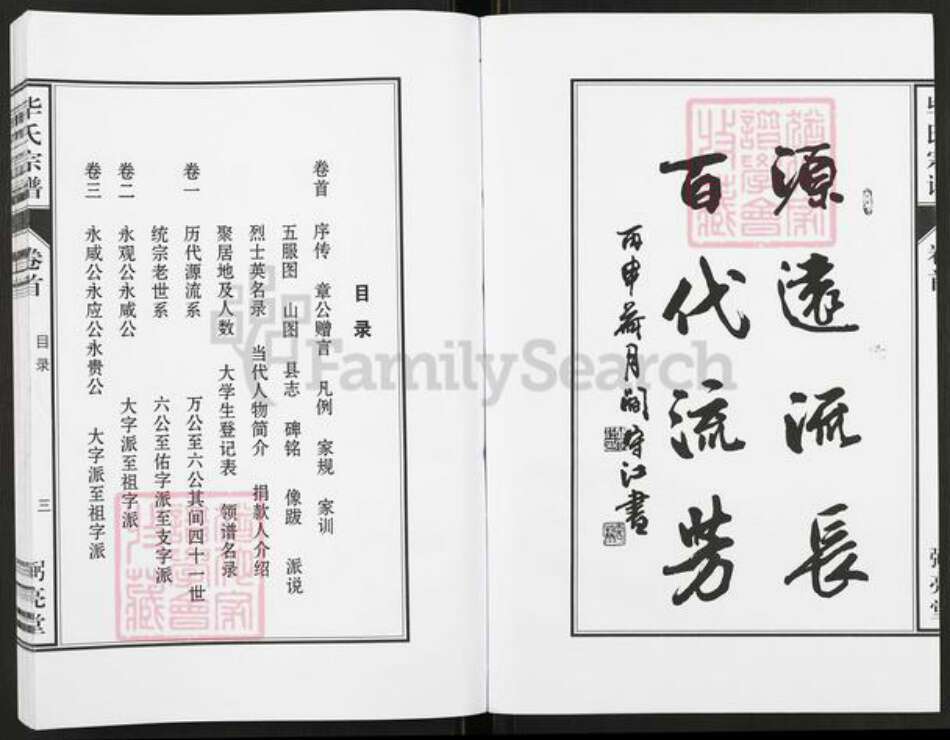 源遠流長
百代流芳
丙申荷月閻守江書
毕氏宗谱
卷首
目录
三
弼亮堂
目录
卷首 序传 章公赠言 凡例 家规 家训
五服图 山图 县志 碑铭 像跋 派说
烈士英名录 当代人物简介 捐款人介绍
聚居地及人数 大学生登记表 领谱名录
卷一 历代源流系 万公至六公其间四十一世
统宗老世系 六公至佑字派至支字派
卷二 永观公永咸公 大字派至祖字派
卷三 永咸公永应公永贵公 大字派至祖字派
FamilySearch